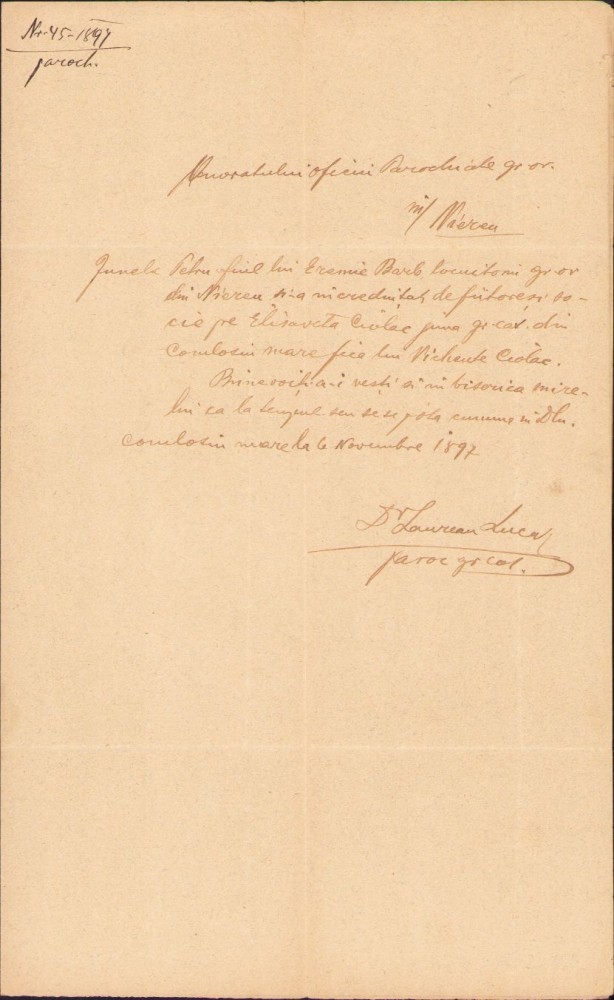 Nr. 45-1897
paroch.
Onoratului oficiu Parochiale gr. or.
in/ Niereu
Junele Petru fiul lui Eremie Barb locuitoriu gr. or
din Niereu si-a incredintat de fiitoresi so-
cie pe Elisaveta Ciolac juna gr. cat. din
Comlosiu mare fica lui Vichente Ciolac.
Binevoiti a-i vesti si in biserica mire-
lui ca la
Comlosiu mare la 6 Novembre 1897
Dr Laurean Luca
paroc gr cat.